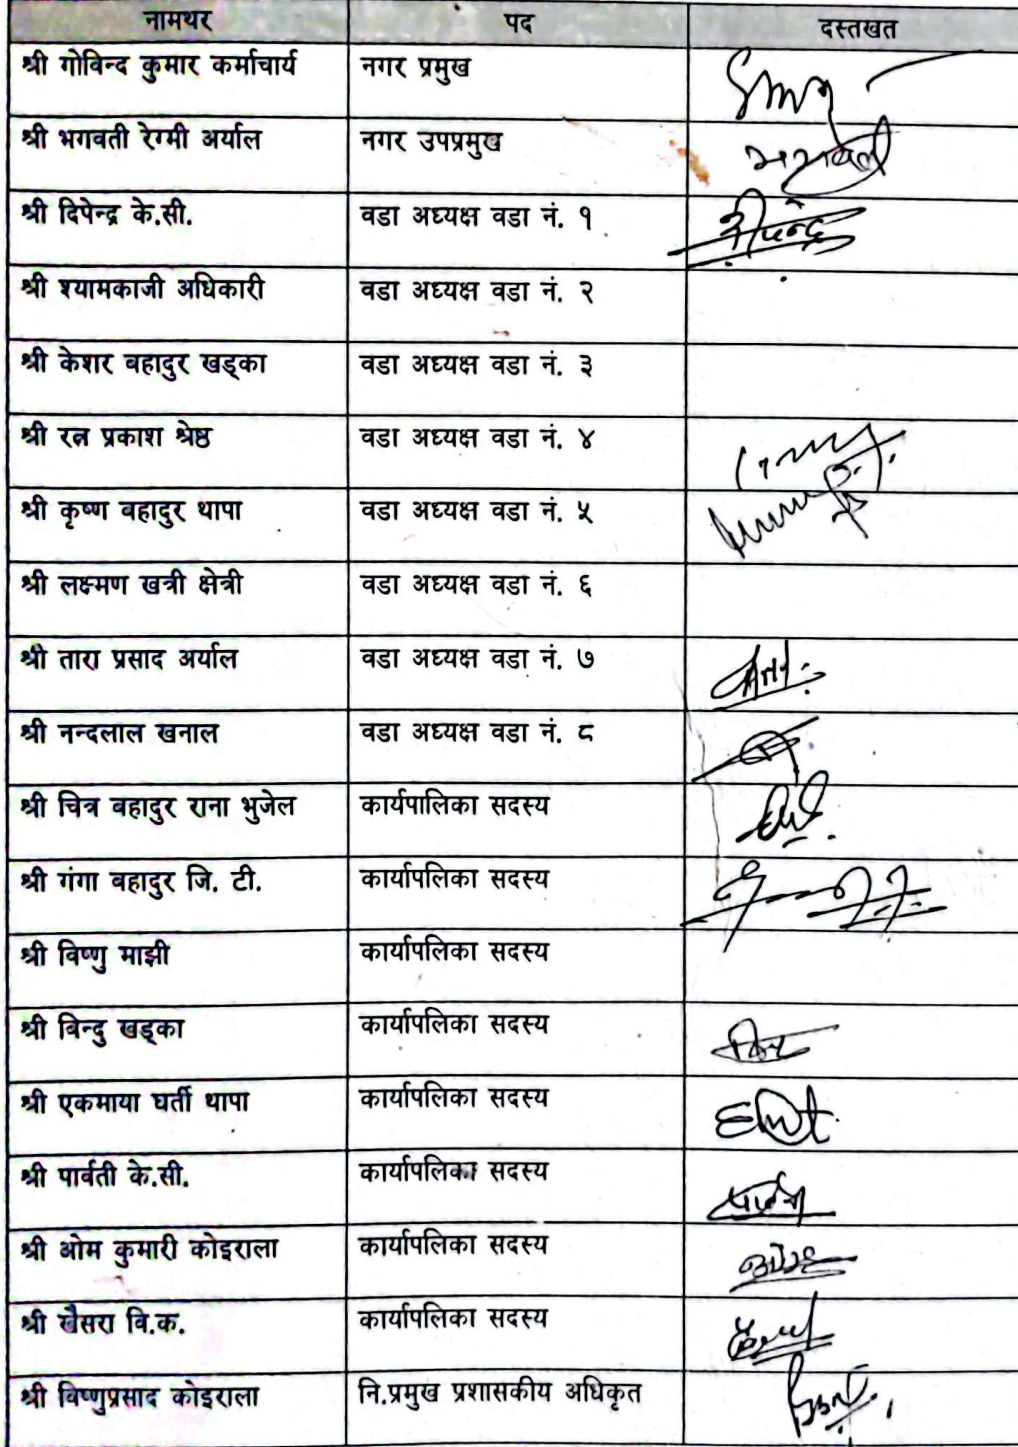 नामथर पद दस्तखत
श्री गोविन्द कुमार कर्माचार्य नगर प्रमुख
श्री भगवती रेग्मी अर्याल नगर उपप्रमुख भगवती
श्री दिपेन्द्र के.सी. वडा अध्यक्ष वडा नं. १
श्री श्यामकाजी अधिकारी वडा अध्यक्ष वडा नं. २
श्री केशर बहादुर खड्का वडा अध्यक्ष वडा नं. ३
श्री रत्न प्रकाश श्रेष्ठ वडा अध्यक्ष वडा नं. ४
श्री कृष्ण बहादुर थापा वडा अध्यक्ष वडा नं. ५
श्री लक्ष्मण खत्री क्षेत्री वडा अध्यक्ष वडा नं. ६
श्री तारा प्रसाद अर्याल वडा अध्यक्ष वडा नं. ७
श्री नन्दलाल खनाल वडा अध्यक्ष वडा नं. ८
श्री चित्र बहादुर राना भुजेल कार्यपालिका सदस्य
श्री गंगा बहादुर जि. टी. कार्यापलिका सदस्य
श्री विष्णु माझी कार्यापलिका सदस्य
श्री बिन्दु खड्का कार्यापलिका सदस्य
श्री एकमाया घर्ती थापा कार्यापलिका सदस्य
श्री पार्वती के.सी. कार्यापलिका सदस्य
श्री ओम कुमारी कोइराला कार्यापलिका सदस्य
श्री खैसरा वि.क. कार्यापलिका सदस्य
श्री विष्णुप्रसाद कोइराला नि.प्रमुख प्रशासकीय अधिकृत